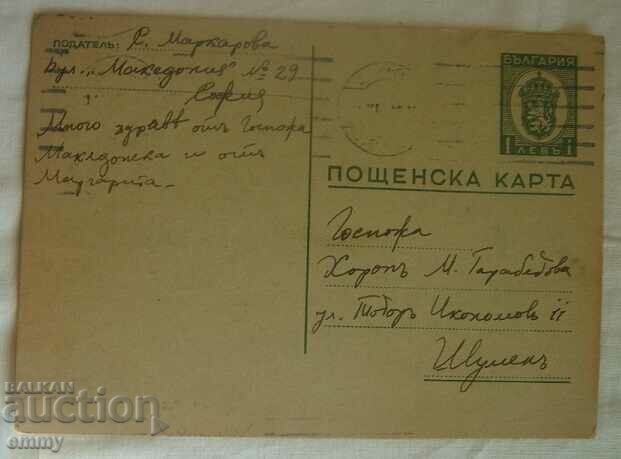 ПОДАТЕЛЬ: Р. Маркарова
Бул. "Македония" № 29
София
Много здраве отъ Госпожа
Македонева и отъ
Маргарита
БЪЛГАРИЯ
1 ЛЕВЪ 1
ПОЩЕНСКА КАРТА
Госпожа
Хоропъ М. Гарабедова
ул. Тодоръ Икономовъ 11
Шуменъ
BALKAN
auction
emmy